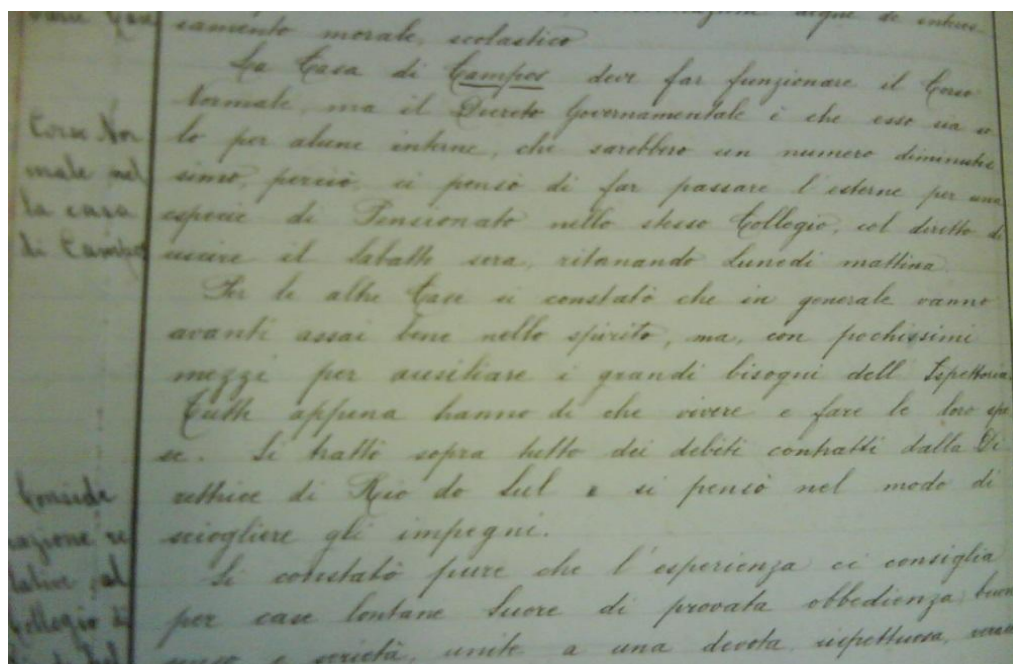 degne de interes
samento morale, scolastico
La Casa di Campos deve far funzionare il Corso
Normale, ma il Decreto Governamentale è che esso sia so
lo per alune interne, che sarebbero un numero diminutis
simo, perciò, si pensò di far passare l'esterne per una
especie di Pensionato nello stesso Collegio, col diritto di
uscire il Sabatto sera, ritonando Lunedì mattina
Per le altre Case si constatò che in generale vanno
avanti assai bene nello spirito, ma, con pochissimi
mezzi per ausiliare i grandi bisogni dell Ispettoria.
Tutte appena hanno di che vivere e fare le loro spe
se. Si trattò sopra tutto dei debiti contratti dalla Di
rettrice di Rio do Sul e si pensò nel modo di
sciogliere gli impegni.
Si constatò pure che l'esperienza ci consiglia
per case lontane Suore di provata obbedienza, buon
senso e serietà, unite a una devota, rispettuosa,
Corso Nor
male nel
la casa
di Campos
Conside
razione re
lative al
Collegio di